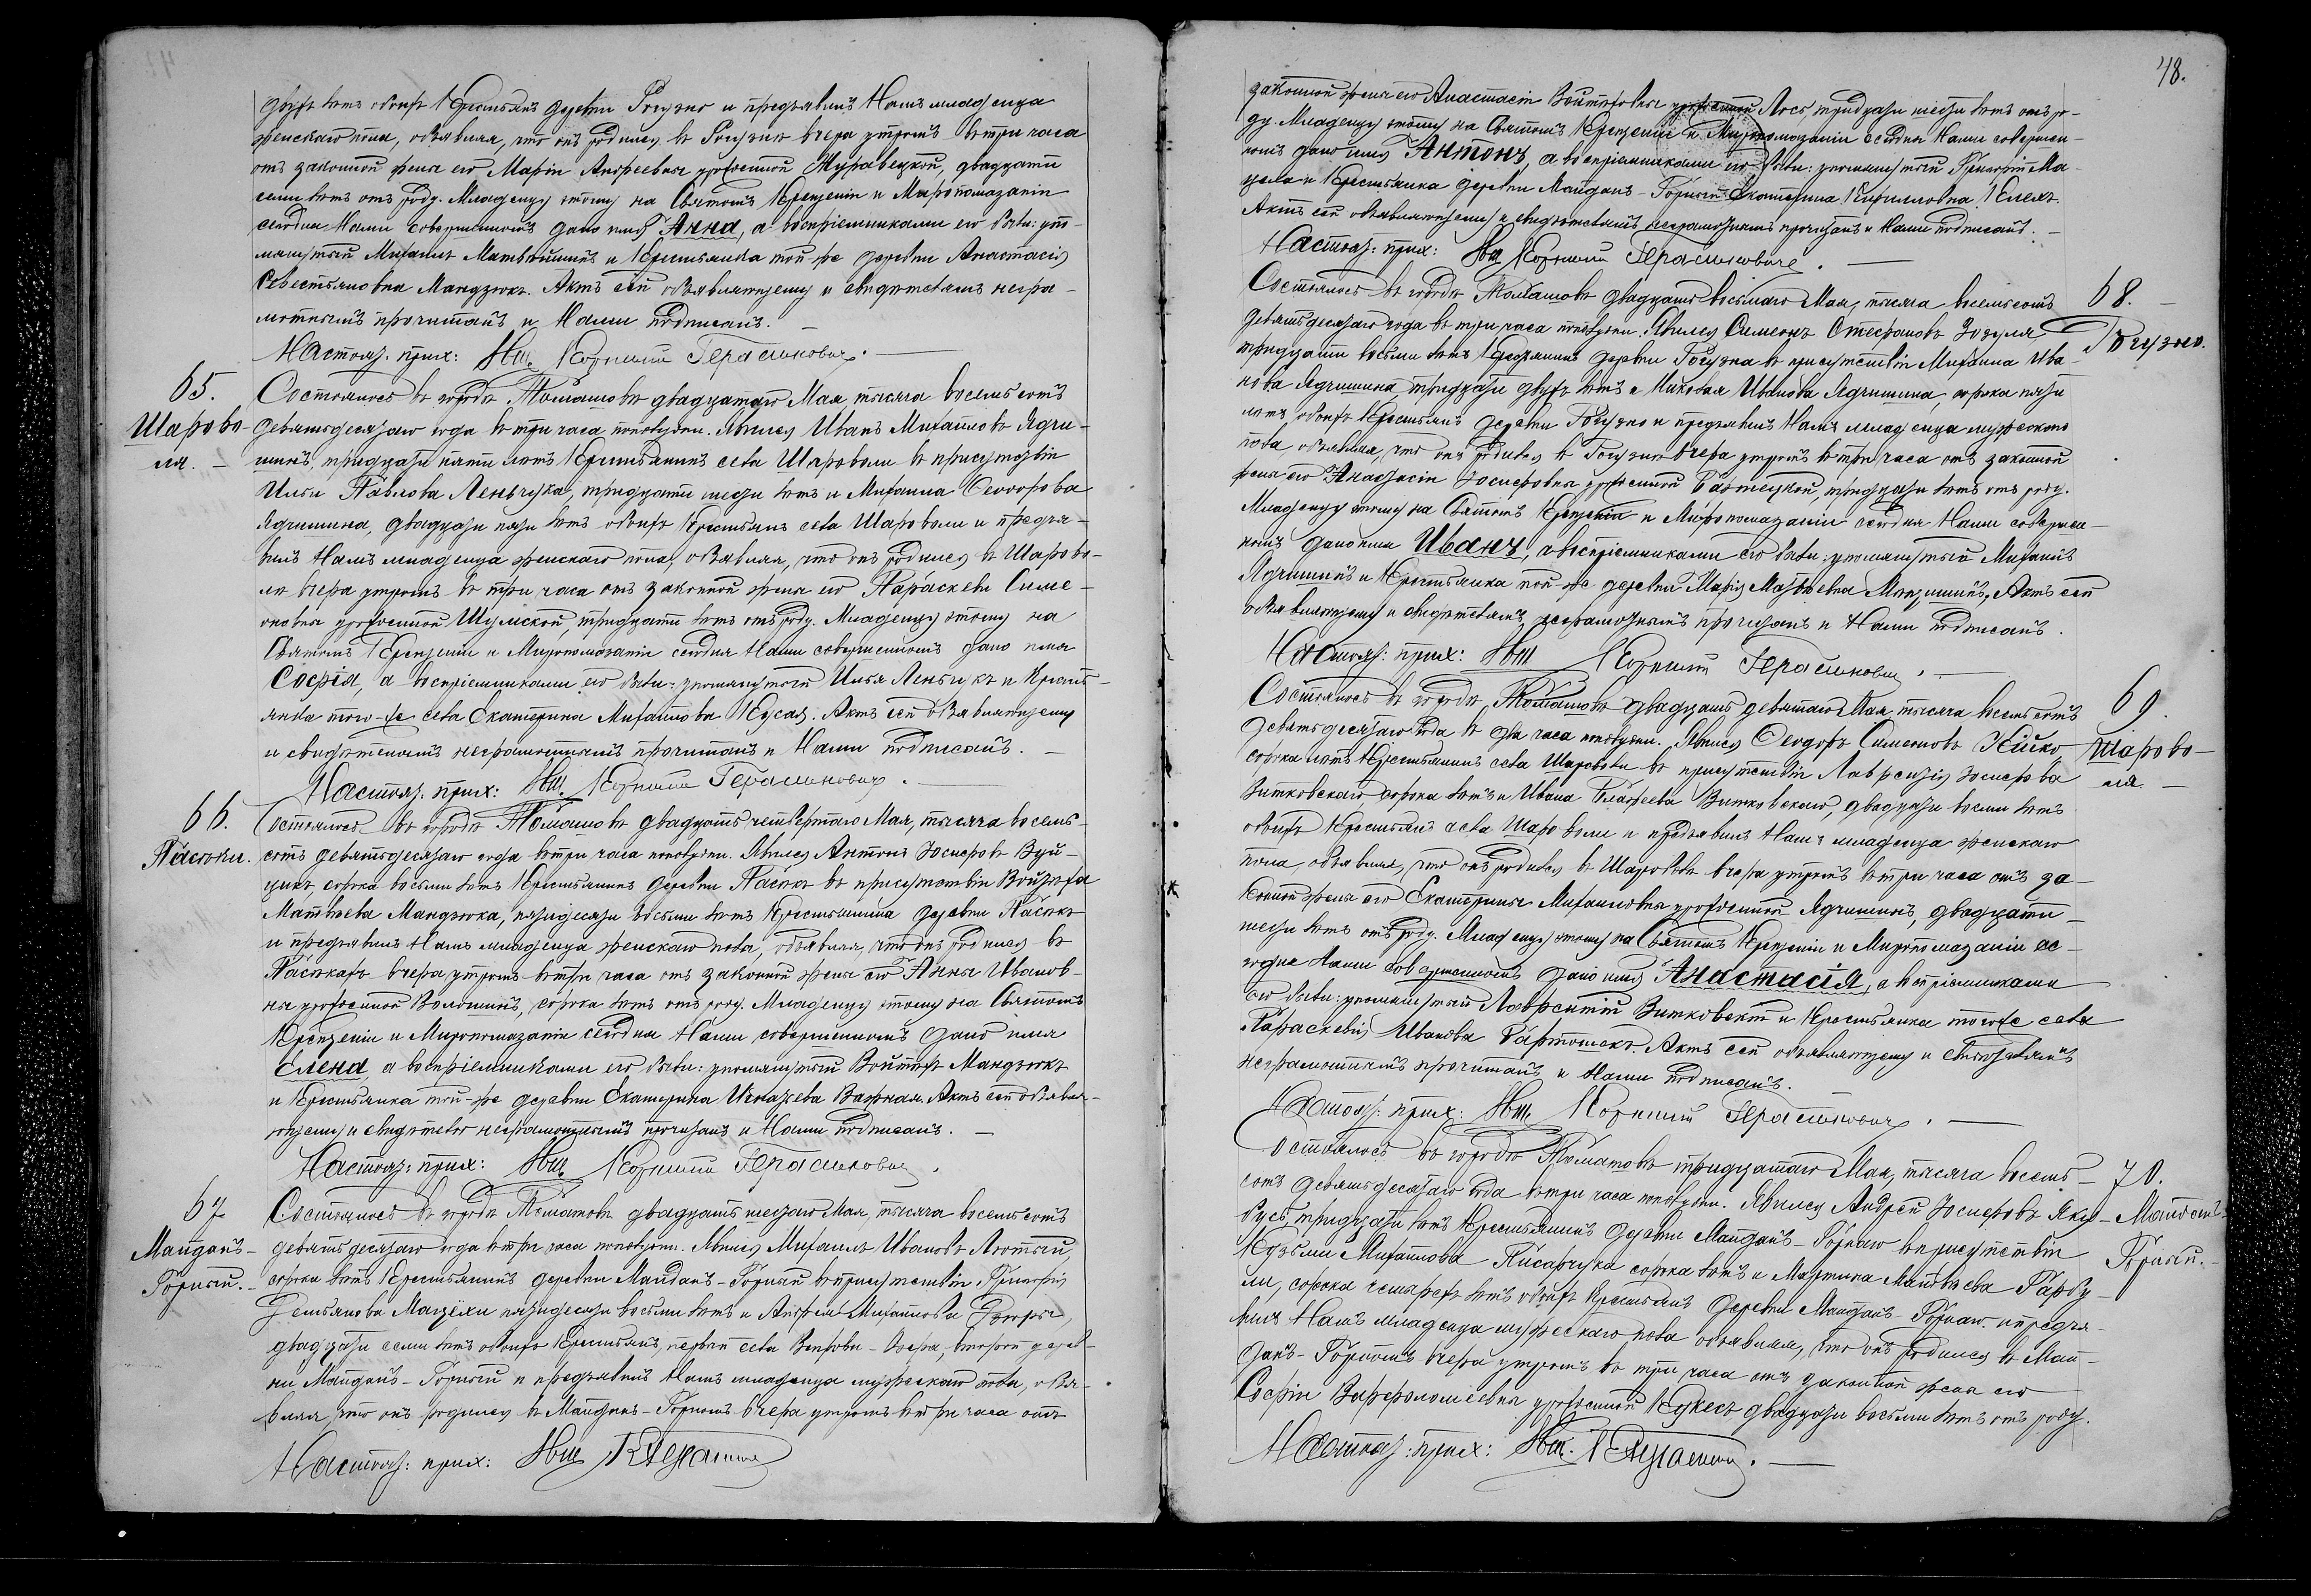 двухъ лѣтъ обоихъ Крестьянъ деревни Рогузно и предъявилъ Намъ младенца
женскаго пола, объявляя, что онъ родился въ Рогузнѣ вчера утромъ въ три часа
отъ законной жены его Маріи Андреевны урожденной Журавецкой, двадцати
семи лѣтъ отъ роду. Младенцу этому на Святомъ Крещеніи и Миропомазаніи
сегодня Нами совершенномъ дано имя Анна, а воспріемниками его были: упо-
мянутый Михаилъ и Крестьянка той же деревни Анастасія
Севестьяновна Мандзюкъ. Актъ сей объявляющему и свидѣтелямъ негра-
мотнымъ прочитанъ и Нами подписанъ. —
Настоят. прих: Свщ. Корнилій Герасимовичъ. —
65.
Шарово-
ля. —
Состоялось въ городѣ Томашовѣ двадцатаго Мая, тысяча восемьсотъ
девятьдесятаго года въ три часа пополудни. Явился Иванъ Михайловъ Ядчи-
шинъ, тридцати пяти лѣтъ Крестьянинъ села Шароволи въ присутствіи
Ильи Павлова Леньчука, тридцати шести лѣтъ и Михаила Ѳеодорова
Ядчишина, двадцати пяти лѣтъ обоихъ Крестьянъ села Шароволи и предъя-
вилъ Намъ младенца женскаго пола, объявляя, что онъ родился въ Шарово-
лѣ вчера утромъ въ три часа отъ законной жены его Параскевы Симе-
оновны урожденной Шумской, тридцати лѣтъ отъ роду. Младенцу этому на
Святомъ Крещеніи и Миропомазаніи сегодня Нами совершенномъ дано имя
Софія, а воспріемниками его были: упомянутый Илья Леньчукъ и Кресть-
янка того-же села Екатерина Михайлова. Актъ сей объявляющему
и свидѣтелямъ неграмотнымъ прочитанъ и Нами подписанъ. —
Настоят. прих: Свщ. Корнилій Герасимовичъ. —
66.
Пасѣки.
Состоялось въ городѣ Томашовѣ двадцать четвертаго Мая, тысяча восемь-
сотъ девятьдесятаго года въ три часа пополудни. Явился Антонъ Іосифовъ Вуй-
цикъ, сорока восьми лѣтъ Крестьянинъ деревни Пасѣкъ въ присутствіи Войтѣха
Матвѣева Мандзюка, пятидесяти восьми лѣтъ Крестьянина деревни Пасѣкъ
и предъявилъ Намъ младенца женскаго пола, объявляя, что онъ родился въ
Пасѣкахъ вчера утромъ въ три часа отъ законной жены его Анны Иванов-
ны урожденной Волошинъ, сорока лѣтъ отъ роду. Младенцу этому на Святомъ
Крещеніи и Миропомазаніи сегодня Нами совершенномъ дано имя
Елена, а воспріемниками его были: упомянутый Войтѣхъ Мандзюкъ
и Крестьянка той-же деревни Екатерина Игнатьева Важная. Актъ сей объявля-
ющему и свидѣтелю неграмотнымъ прочитанъ и Нами подписанъ. —
Настоят: прих: Свщ. Корнилій Герасимовичъ.
67
Майданъ-
Горный. —
Состоялось въ городѣ Томашовѣ двадцать шестаго Мая, тысяча восемьсотъ
девятьдесятаго года въ три часа пополудни. Явился Михаилъ Ивановъ Лютый,
сорока лѣтъ Крестьянинъ деревни Майданъ-Горный въ присутствіи Григорія
Демьянова Мацёли пятидесяти восьми лѣтъ и Андрея Михайлова,
двадцати семи лѣтъ обоихъ Крестьянъ, первый села Вепрова-Озера, второй дерев-
ни Майданъ-Горный и предъявилъ Намъ младенца мужескаго пола, объя-
вляя, что онъ родился въ Майданѣ-Горномъ вчера утромъ въ три часа отъ
Настоят: прих: Свщ
48.
законной жены его Анастасіи Войтѣховны урожденной Лось, тридцати шести лѣтъ отъ ро-
ду. Младенцу этому на Святомъ Крещеніи и Миропомазаніи сегодня Нами совершен-
номъ дано имя Антонъ, а воспріемниками его были: упомянутый Григорій Ма-
цела и Крестьянка деревни Майданъ-Горный Екатерина Кирилловна.
Актъ сей объявляющему и свидѣтелямъ неграмотнымъ прочитанъ и Нами подписанъ. —
Настоят: прих: Свщ. Корнилій Герасимовичъ. —
68. —
Рогузно.
Состоялось въ городѣ Томашовѣ двадцать восьмаго Мая, тысяча восемьсотъ
девятьдесятаго года въ три часа пополудни. Явился Симеонъ Стефановъ Зозуля
тридцати восьми лѣтъ Крестьянинъ деревни Рогузна въ присутствіи Михаила Ива-
нова Ядчишина, тридцати двухъ лѣтъ и Николая Иванова Ядчишина, сорока пяти
лѣтъ обоихъ Крестьянъ деревни Рогузно и предъявилъ Намъ младенца мужескаго
пола объявляя, что онъ родился въ Рогузнѣ вчера утромъ въ три часа отъ законной
жены его Анастасіи Іосифовны урожденной, тридцати лѣтъ отъ роду.
Младенцу этому на Святомъ Крещеніи и Миропомазаніи сегодня Нами совершен-
номъ дано имя Иванъ, а воспріемниками его были: упомянутый Михаилъ
Ядчишинъ и Крестьянка той-же деревни Марія Матвѣевна. Актъ сей
объявляющему и свидѣтелямъ, неграмотнымъ прочитанъ и Нами подписанъ.
Настоят: прих: Свщ Корнилій Герасимовичъ. —
69.
Шарово-
ля. —
Состоялось въ городѣ Томашовѣ двадцать девятаго Мая, тысяча восемьсотъ
девятьдесятаго года въ два часа пополудни. Явился Ѳеодоръ Симеоновъ
сорока лѣтъ Крестьянинъ села Шароволи въ присутствіи Лаврентія Іосифова
Витковскаго, сорока лѣтъ и Ивана Витковскаго, двадцати восьми лѣтъ
обоихъ Крестьянъ села Шароволи и предъявилъ Намъ младенца женскаго
пола, объявляя, что онъ родился въ Шароволѣ вчера утромъ въ три часа отъ за-
конной жены его Екатерины Михайловны урожденной Ядчишинъ, двадцати
шести лѣтъ отъ роду. Младенцу этому на Святомъ Крещеніи и Миропомазаніи се-
годня Нами совершенномъ дано имя Анастасія, а воспріемниками
его были: упомянутый Лаврентій Витковскій и Крестьянка тогоже села
Параскевія Иванова Бартошекъ. Актъ сей объявляющему и свидѣтелямъ
неграмотнымъ прочитанъ и Нами подписанъ.
Настоят: прих: Свщ. Корнилій Герасимовичъ. —
70.
Майданъ-
Горный. —
Состоялось въ городѣ Томашовѣ тридцатаго Мая, тысяча восемь-
сотъ девятьдесятаго года въ три часа пополудни. Явился Андрей Іосифовъ Яку-
бусъ, тридцати лѣтъ Крестьянинъ деревни Майданъ-Горнаго въ присутствіи
Кузьмы Михайлова Писарчука сорока лѣтъ и Мартина Матвѣева Гарбу-
ли, сорока четырехъ лѣтъ обоихъ Крестьянъ деревни Майданъ-Горнаго. и предъя-
вилъ Намъ младенца мужескаго пола объявляя, что онъ родился въ Май-
данѣ-Горномъ вчера утромъ въ три часа отъ законной жены его
Софіи Варѳоломѣевны урожденной двадцати восьми лѣтъ отъ роду.
Настоят: прих: Свщ. —